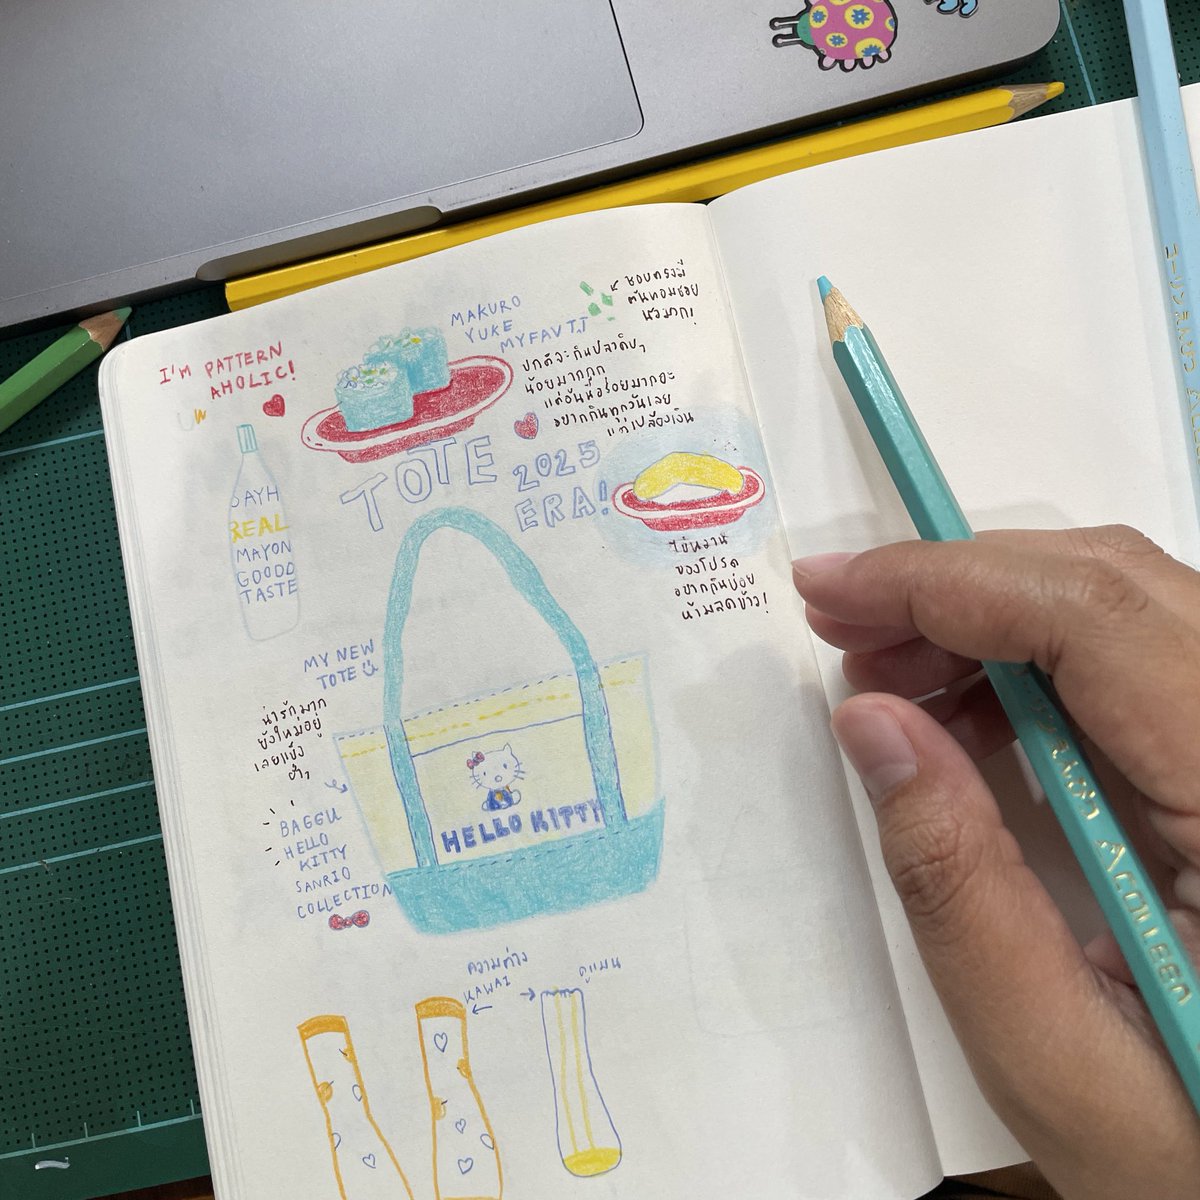 I'M PATTERN
AHOLIC!
MAKURO
YUKE
MY FAV T.T
ชอบตรงมี
ต้นหอมซอย
นัวมาก!
ปกติจะกินปลาดิบๆ
น้อยมากกก
แต่อันนี้อร่อยมากอะ
อยากกินทุกวันเลย
แต่เปลืองเงิน
TOTE
2025
ERA!
REAL
MAYON
GOODD
TASTE
ไข่หวาน
ของโปรด
อยากกินบ่อย
MY NEW
TOTE
น่ารักมาก
ยังใหม่อยู่
เลยแข็ง
BAGGU
HELLO
KITTY
SANRIO
COLLECTION
HELLO KITTY
ความต่าง
KAWAI
ดูแมน
ACOLLEEN